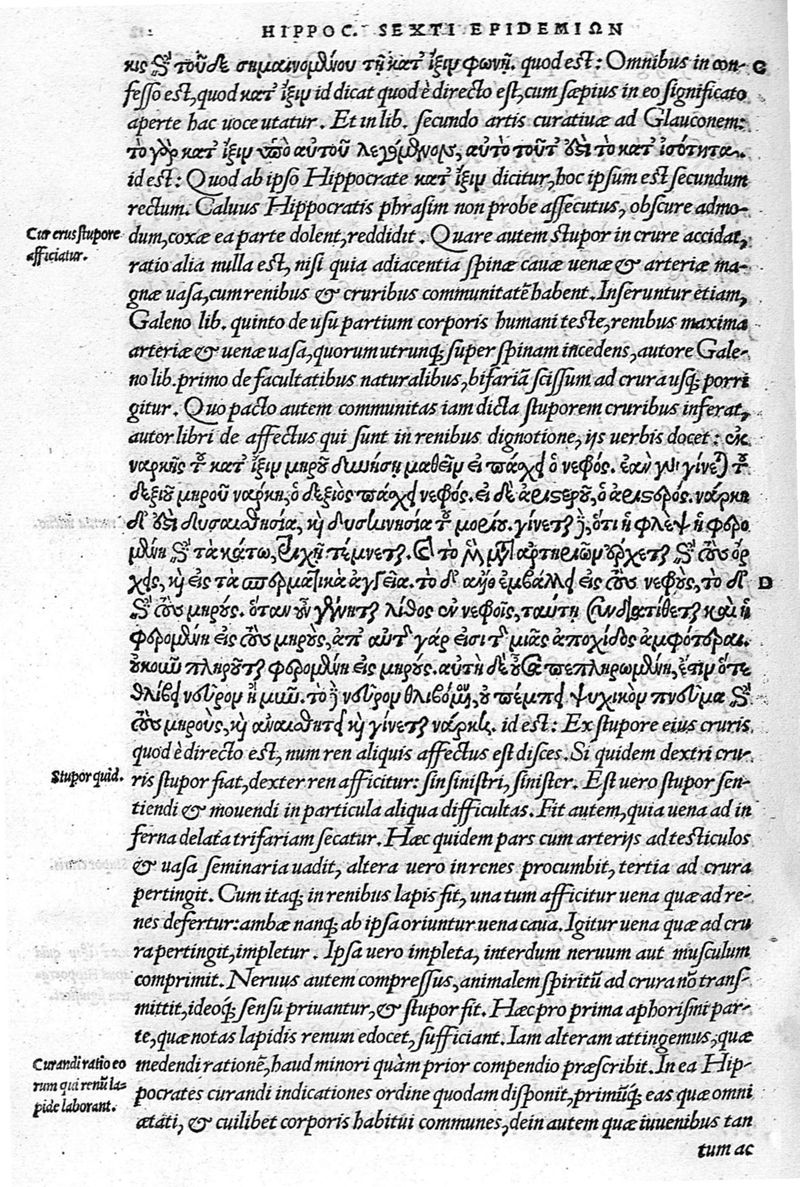 HIPPOC. SEXTI EPIDEMIΩN
τοῦδε σημαινομένου τῇ κατ' ἴξιν φωνῇ. quod est: Omnibus in con-
C
fesso est, quod κατ' ἴξιν id dicat quod è directo est, cum sæpius in eo significato
aperte hac uoce utatur. Et in lib. secundo artis curatiuæ ad Glauconem:
τὸ γὰρ κατ' ἴξιν ὑπὸ αὐτοῦ λεγόμενον, αὐτὸ τοῦτ' ἐστὶ τὸ κατ' ἰσότητα.
id est: Quod ab ipso Hippocrate κατ' ἴξιν dicitur, hoc ipsum est secundum
rectum. Caluus Hippocratis phrasim non probe assecutus, obscure admo-
Cur crus stupore
afficiatur.
dum, coxæ ea parte dolent, reddidit. Quare autem stupor in crure accidat,
ratio alia nulla est, nisi quia adiacentia spinæ cauæ uenæ & arteriæ ma-
gnæ uasa, cum renibus & cruribus communitatē habent. Inseruntur etiam,
Galeno lib. quinto de usu partium corporis humani teste, renibus maxima
arteriæ & uenæ uasa, quorum utrunq; super spinam incedens, autore Gale-
no lib. primo de facultatibus naturalibus, bifariā scissum ad crura usq; porri
gitur. Quo pacto autem communitas iam dicta stuporem cruribus inferat,
autor libri de affectus qui sunt in renibus dignotione, ijs uerbis docet: ἐκ
ναρκῆς τοῦ κατ' ἴξιν μηροῦ δυνήσῃ μαθεῖν εἰ πάσχει ὁ νεφρός. ἐὰν γίνεται τοῦ
δεξιοῦ μηροῦ νάρκη, ὁ δεξιὸς πάσχει νεφρός. εἰ δὲ ἀριστεροῦ, ὁ ἀριστερός. νάρκη
δ' ἐστὶ δυσαισθησία, καὶ δυσκινησία τοῦ μορίου. γίνεται δὲ, ὅτι ἡ φλὲψ ἡ φερο
μένη ἐπὶ τὰ κάτω, τριχῆ τέμνεται. καὶ τὸ μὲν μετὰ ἀρτηριῶν ἔρχεται ἐπὶ τοὺς ὄρ
χεις, καὶ εἰς τὰ σπερματικὰ ἀγγεῖα. τὸ δ' αὐτὸ ἐμβάλλει εἰς τοὺς νεφροὺς, τὸ δὲ
D
ἐπὶ τοὺς μηρούς. ὅταν οὖν γένηται λίθος ἐν νεφροῖς, ταύτῃ συνδιατίθεται καὶ ἡ
φερομένη εἰς τοὺς μηροὺς, ἀπ' αὐτῆς γάρ εἰσι τῆς μιᾶς ἀποσχίδος ἀμφότεραι.
οὐκοῦν πληροῦται φερομένη εἰς μηρούς. αὐτὴ δὲ πεπληρωμένη, ἔστιν ὅτε
θλίβει νεῦρον ἢ μῦν. τὸ δὲ νεῦρον θλιβόμενον, οὐ πέμπει ψυχικὸν πνεῦμα ἐπὶ
τοὺς μηροὺς, καὶ ἀναισθητεῖ καὶ γίνεται νάρκη. id est: Ex stupore eius cruris,
quod è directo est, num ren aliquis affectus est disces. Si quidem dextri cru-
Stupor quid.
ris stupor fiat, dexter ren afficitur: sin sinistri, sinister. Est uero stupor sen-
tiendi & mouendi in particula aliqua difficultas. Fit autem, quia uena ad in
ferna delata trifariam secatur. Hæc quidem pars cum arterijs ad testiculos
& uasa seminaria uadit, altera uero in renes procumbit, tertia ad crura
pertingit. Cum itaq; in renibus lapis fit, una tum afficitur uena quæ ad re-
nes defertur: ambæ nanq; ab ipsa oriuntur uena caua. Igitur uena quæ ad cru
ra pertingit, impletur. Ipsa uero impleta, interdum neruum aut musculum
comprimit. Neruus autem compressus, animalem spiritū ad crura nō trans-
mittit, ideoq; sensu priuantur, & stupor fit. Hæc pro prima aphorismi par-
te, quæ notas lapidis renum edocet, sufficiant. Iam alteram attingemus, quæ
Curandi ratio eo
rum qui renū la-
pide laborant.
medendi rationē, haud minori quàm prior compendio præscribit. In ea Hip-
pocrates curandi indicationes ordine quodam disponit, primūq; eas quæ omni
ætati, & cuilibet corporis habitui communes, dein autem quæ iuuenibus tan
tum ac